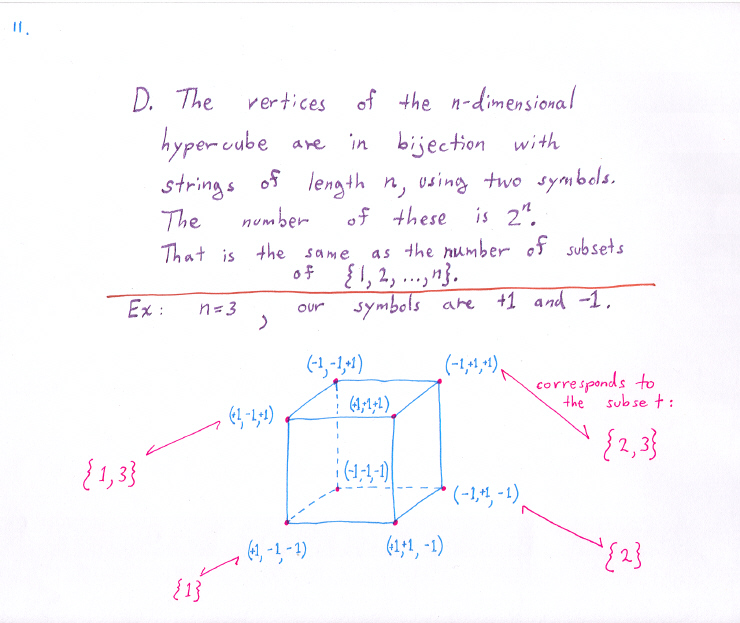 11.
D. The vertices of the n-dimensional
hypercube are in bijection with
strings of length n, using two symbols.
The number of these is 2ⁿ.
That is the same as the number of subsets
of {1, 2, ..., n}.
Ex: n=3, our symbols are +1 and -1.
(-1,-1,+1) (-1,+1,+1)
corresponds to
the subset:
(+1,-1,+1) (+1,+1,+1)
{2,3}
{1,3}
(-1,-1,-1)
(-1,+1,-1)
(+1,-1,-1) (+1,+1,-1)
{2}
{1}